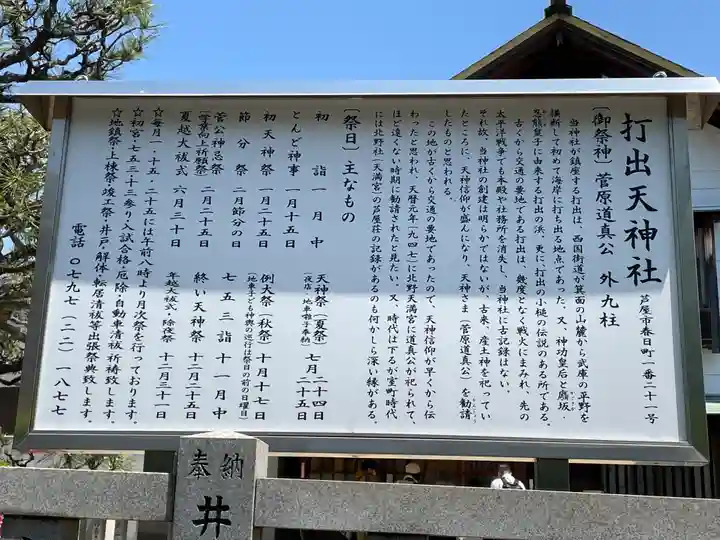 打出天神社
芦屋市春日町一番二十一号
(御祭神) 菅原道真公 外九柱
当神社が鎮座する打出は、西国街道が箕面の山麓から武庫の平野を
横断して初めて海岸に打ち出る地点であった。又、神功皇后と麛坂・
忍熊皇子に由来する打出の浜、更に、打出の小槌の伝説のある所である。
古くから交通の要地である打出は、幾度となく戦火にまみれ、先の
太平洋戦争でも本殿や社務所を消失し、当神社に古記録はない。
それ故、当神社の創建は明らかではないが、古来、産土神を祀ってい
たところに、天神信仰が盛んになり、天神さま(菅原道真公)を勧請
したものと思われる。
この地が古くから交通の要地であったので、天神信仰が早くから伝
わったと思われ、天暦元年(九四七)に北野天満宮に道真公が祀られて、
ほど遠くない時期に勧請されたと見たい。又、時代は下るが室町時代
には北野社(天満宮)の芦屋荘の記録があるのも何かしら深い縁がある。
(祭日) 主なもの
初詣 一月中
とんど神事 一月十五日
初天神祭 一月二十五日
節分祭 二月節分の日
菅公神忌祭 二月二十五日
(学業向上祈願祭)
夏越大祓式 六月三十日
天神祭(夏祭) 七月二十四日 二十五日
(夜店・地車囃子奉納)
例大祭(秋祭) 十月十七日
(地車子ども神輿の巡行は祭日の前の日曜日)
七五三詣 十一月中
終い天神祭 十二月二十五日
年越大祓式・除夜祭 十二月三十一日
☆毎月一・十五・二十五には午前八時より月次祭を行っております。
☆初宮・七五三・十三参り・入試合格・厄除・自動車清祓 祈祷致します。
☆地鎮祭・上棟祭・竣工祭・井戸・解体・転居清祓等出張祭典致します。
電話 〇七九七(二二)一八七七
奉納
井